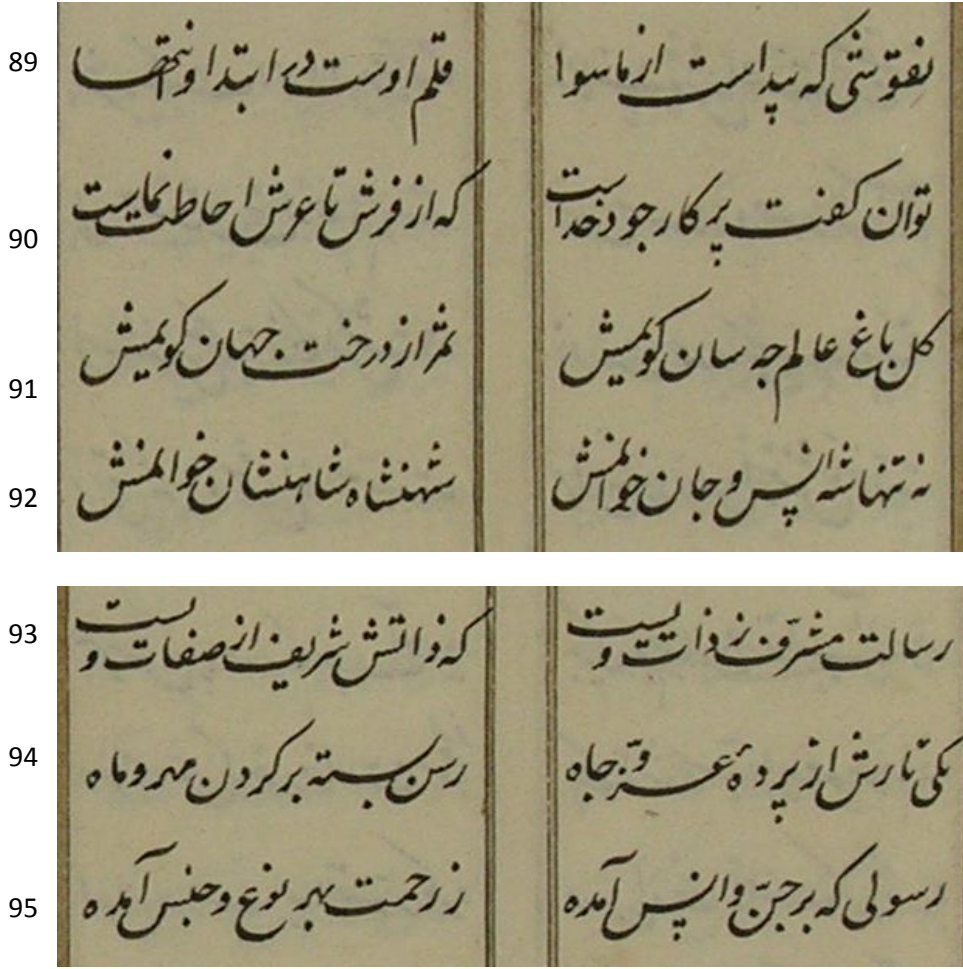 89 نقوشی که پیداست از ماسوا قلم اوست در ابتدا و انتها
90 توان کفت پرکار جود خداست که از فرش تا عرش احاطت نماست
91 کل باغ عالم چه سان کویمش ثمر از درخت جهان کویمش
92 نه تنها شه انس و جان خوانمش شهنشاه شاهنشان خوانمش
93 رسالت مشرّف ز ذات ویست که ذاتش شریف از صفات ویست
94 یکی تارش از پردهٔ عزّ و جاه رسن بسته بر کردن مهر و ماه
95 رسولی که بر جنّ و انس آمده ز رحمت بهر نوع و جنس آمده